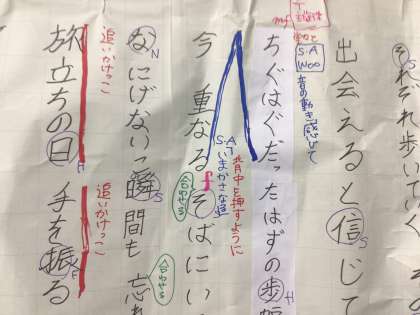 それぞれ歩いていく
出会えると信じて
S
mf
T
主旋律
動き
S.A
Woo
音の動き感じて
ちぐはぐだったはずの歩
H
今 重なる そばにい
f
S
S.A
T
いまかさなる
背中を押すように
なにげないっ瞬間も 忘れ
N
S
追いかけっこ
追いかけっこ
旅立ちの日 手を振る
H
F